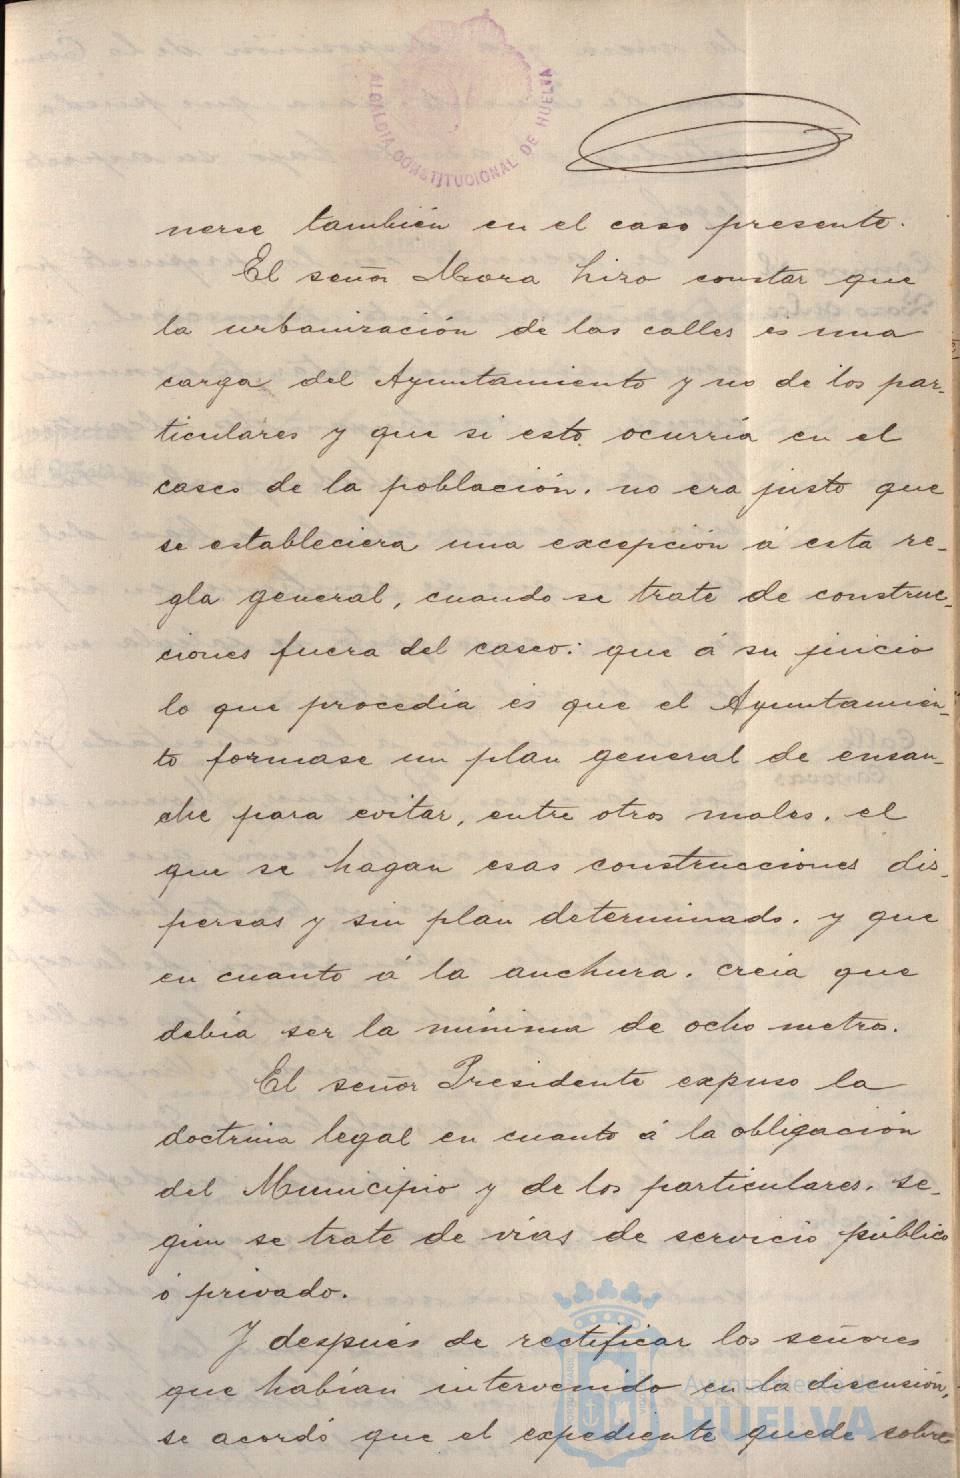 ALCALDIA CONSTITUCIONAL DE HUELVA
nerse también en el caso presente.
El señor Mora hizo constar que
la urbanización de las calles es una
carga del Ayuntamiento y no de los par-
ticulares y que si esto ocurría en el
casco de la población, no era justo que
se estableciera una excepción á esta re-
gla general, cuando se trate de construc-
ciones fuera del casco: que á su juicio
lo que procedia es que el Ayuntamien-
to formase un plan general de ensan-
che para evitar, entre otros males, el
que se hagan esas construcciones dis-
persas y sin plan determinado, y que
en cuanto á la anchura, creia que
debía ser la mínima de ocho metros.
El señor Presidente expuso la
doctrina legal en cuanto á la obligación
del Municipio y de los particulares, se-
gún se trate de vías de servicio público
ó privado.
Y después de rectificar los señores
que habían intervenido en la discusión,
se acordó que el expediente quede sobre
Ayuntamiento de
HUELVA